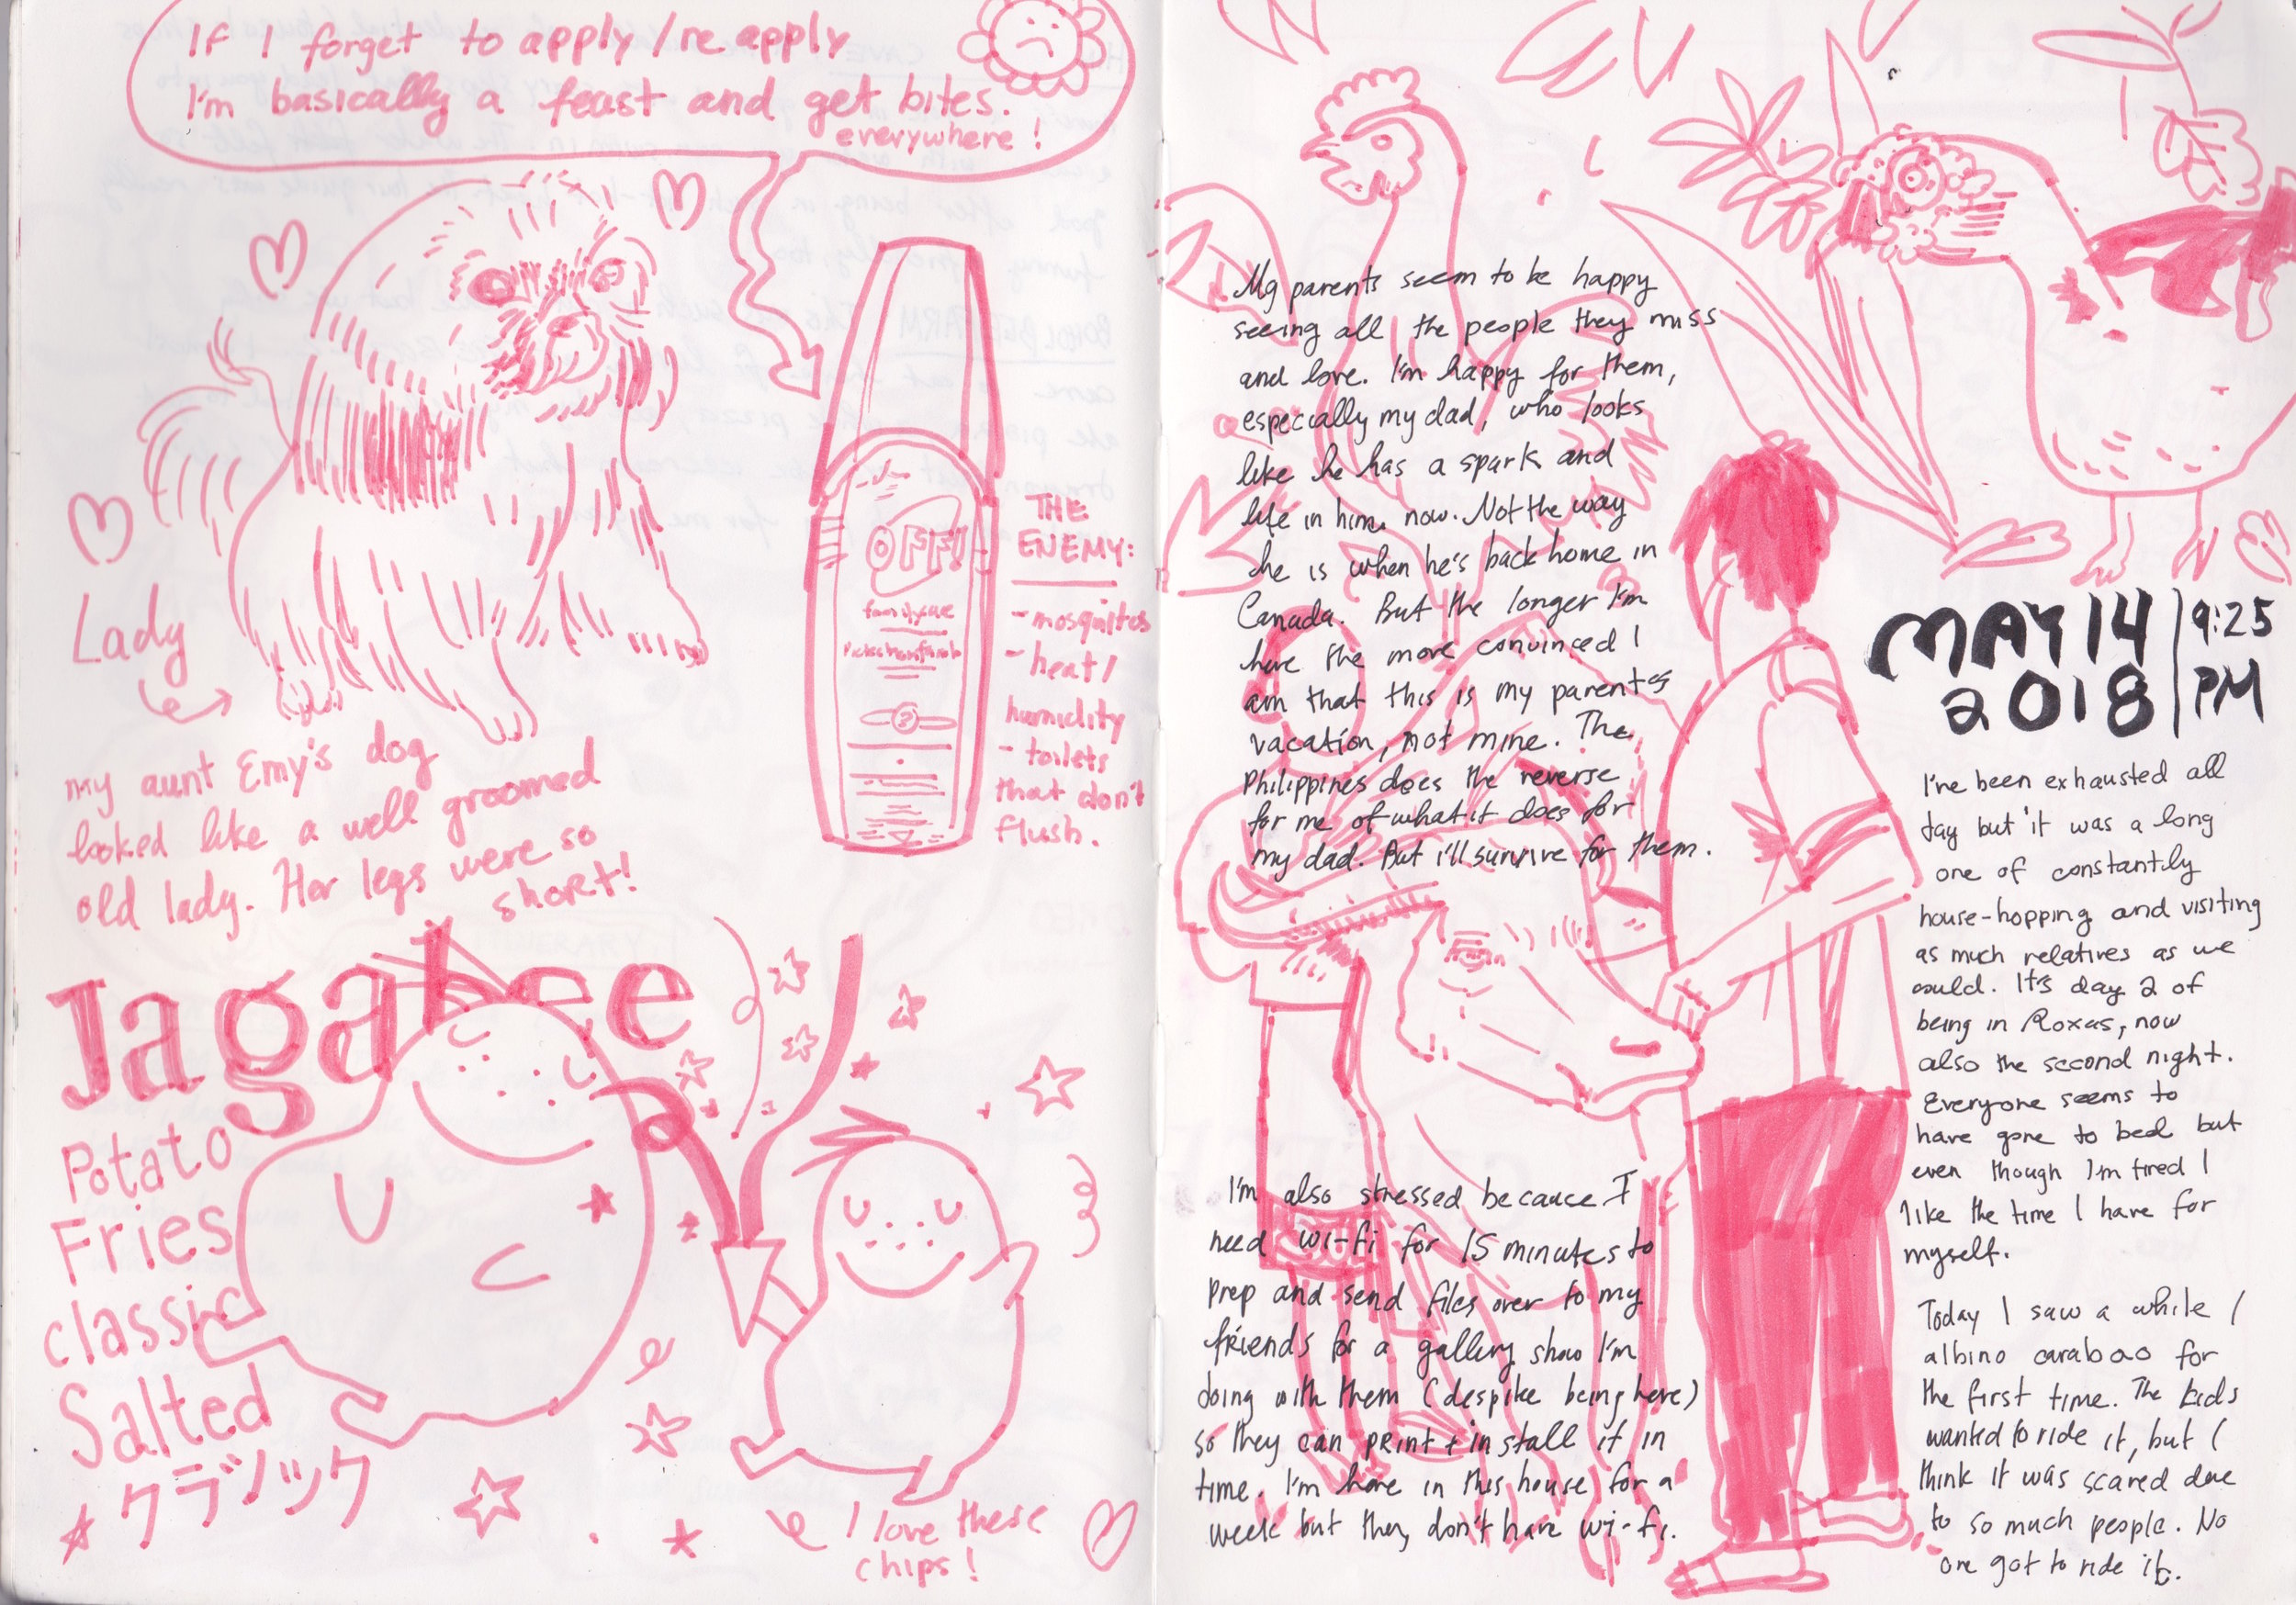 If I forget to apply/re apply
I'm basically a feast and get bites.
everywhere!
OFF!
family care
THE
ENEMY:
- mosquitos
- heat/
humidity
- toilets
that don't
flush.
Lady
my aunt Emy's dog
looked like a well groomed
old lady. Her legs were so
short!
Jagabee
Potato
Fries
classic
Salted
クラシック
I love these
chips!
My parents seem to be happy
seeing all the people they miss
and love. I'm happy for them,
especially my dad, who looks
like he has a spark and
life in him now. Not the way
he is when he's back home in
Canada. But the longer I'm
here the more convinced I
am that this is my parents
vacation, not mine. The
Philippines does the reverse
for me of what it does for
my dad. But i'll survive for them.
I'm also stressed because I
need wi-fi for 15 minutes to
prep and send files over to my
friends for a gallery show I'm
doing with them (despite being here)
so they can print + install it in
time. I'm here in this house for a
week but they don't have wi-fi.
MAY 14
2018
9:25
PM
I've been exhausted all
day but it was a long
one of constantly
house-hopping and visiting
as much relatives as we
could. It's day 2 of
being in Roxas, now
also the second night.
Everyone seems to
have gone to bed but
even though I'm tired I
like the time I have for
myself.
Today I saw a white /
albino carabao for
the first time. The kids
wanted to ride it, but I
think it was scared due
to so much people. No
one got to ride it.